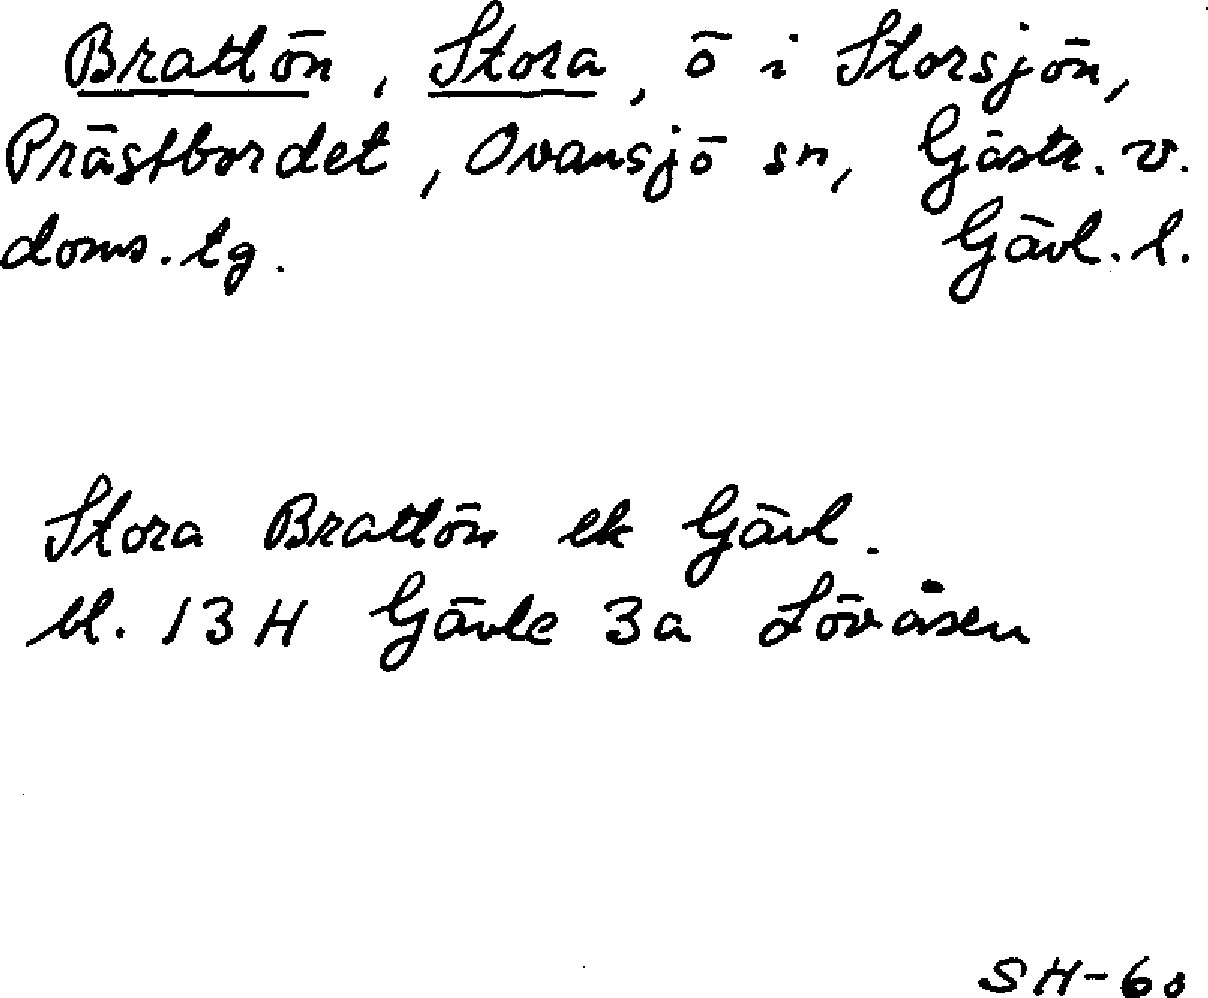 Brattön, Stora, ö i Storsjön,
Prästbordet, Ovansjö sn, Gästr. v.
doms. tg. Gävl. l.
Stora Brattön ek Gävl.
bl. 13 H Gävle 3a Lövåsen
SH-60